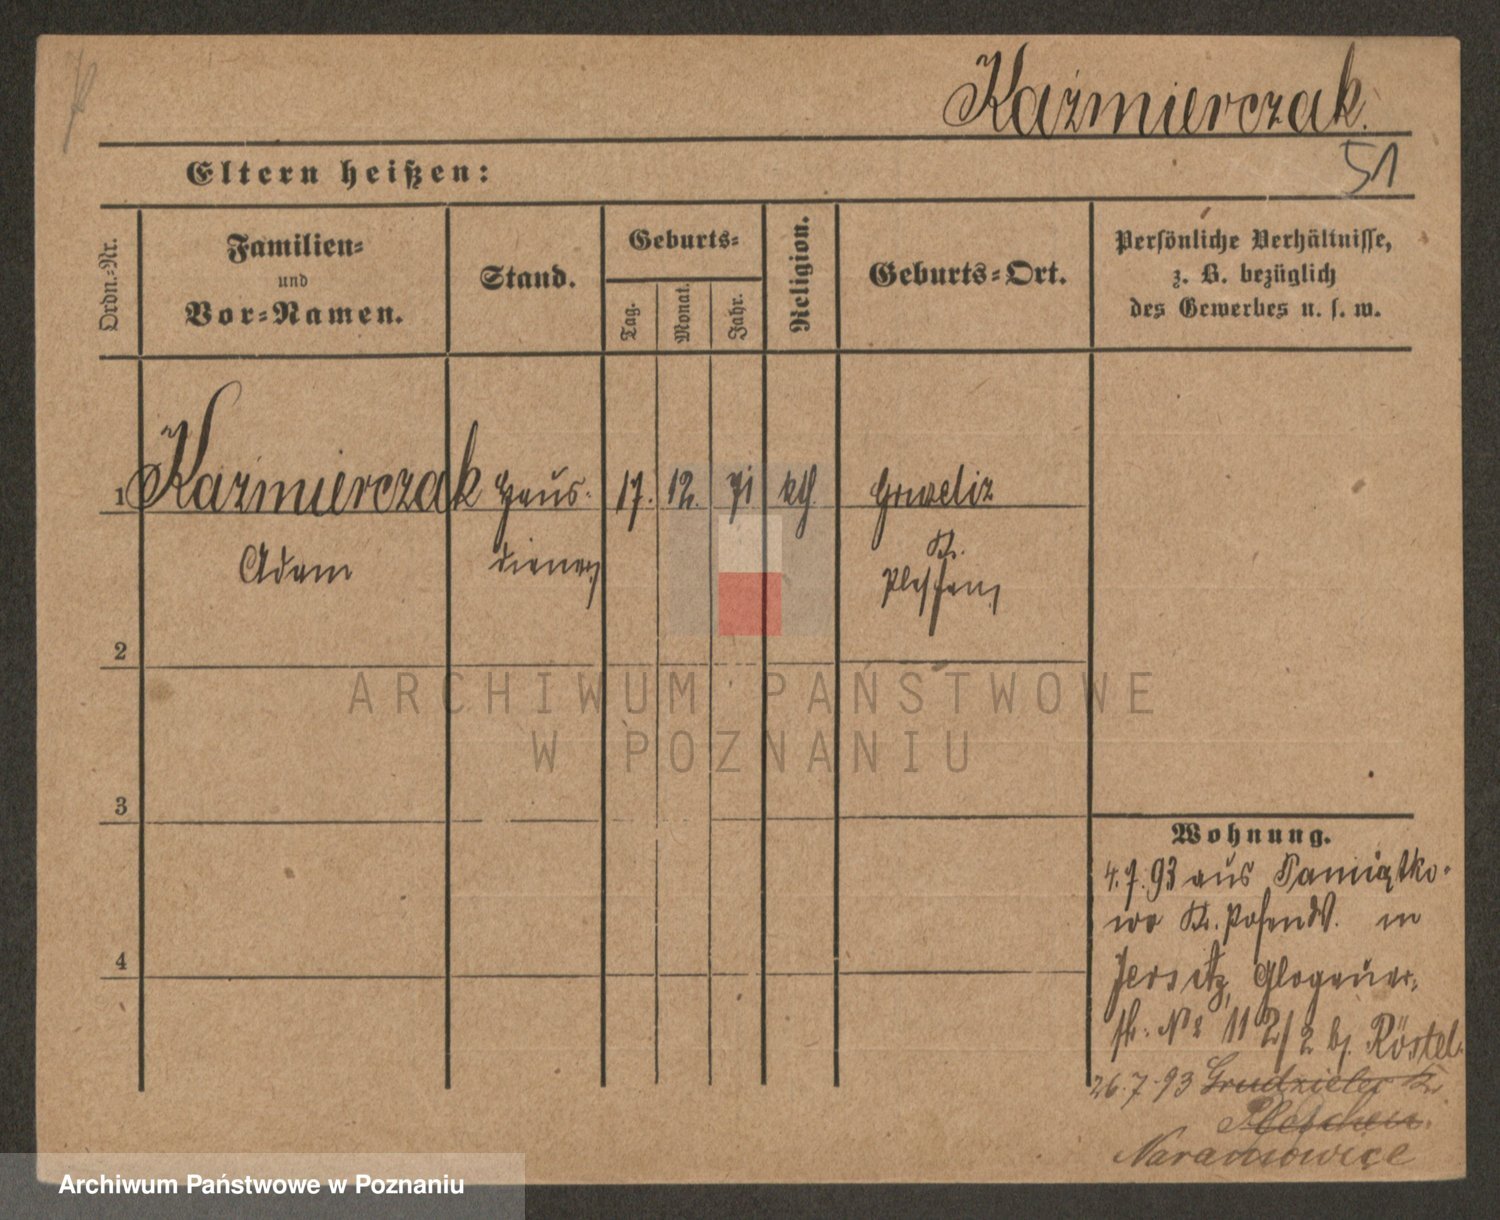 Kaźmierczak.
51
Eltern heißen:
Ordn.-Nr.
Familien-
und
Vor-Namen.
Stand.
Geburts-
Tag.
Monat.
Jahr.
Religion.
Geburts-Ort.
Persönliche Verhältnisse,
z. B. bezüglich
des Gewerbes u. s. w.
1 Kaźmierczak Haus- 17. 12. 71 kth.
Adam diener Kr.
Pleschen
2
ARCHIWUM PAŃSTWOWE
W POZNANIU
3
Wohnung.
4.7.93 aus Pamiątko-
wo Kr. Posen W. in
4
Jersitz, Glogauer-
str. No 112/2 b. Röstel.
26.7.93 Grudzielec Kr.
Pleschen.
Naramowice
Archiwum Państwowe w Poznaniu